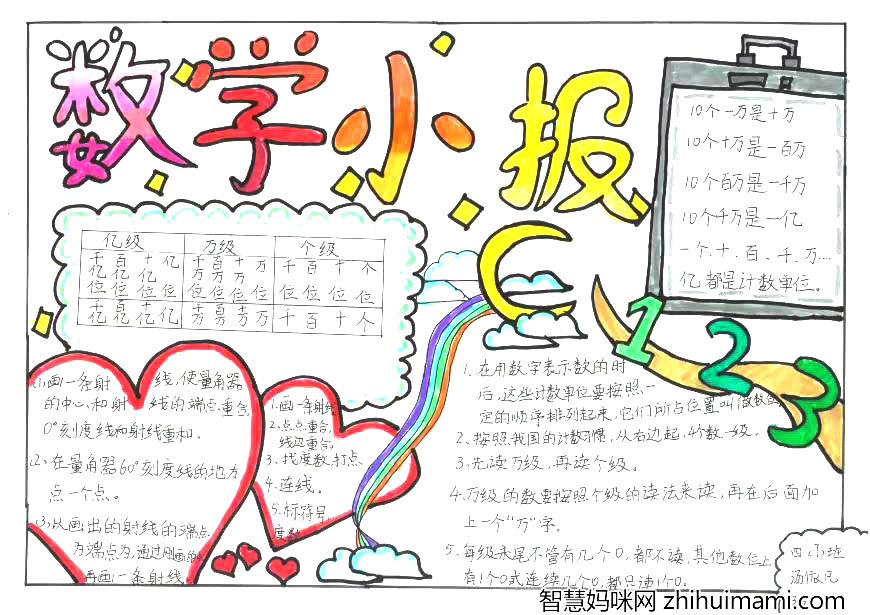 数学小报
10个一万是十万
10个十万是一百万
10个百万是一千万
10个千万是一亿
一个.十.百.千.万…
亿都是计数单位。
亿级 万级 个级
千亿位 百亿位 十亿位 亿位 千万位 百万位 十万位 万位 千位 百位 十位 个位
千亿 百亿 十亿 亿 千万 百万 十万 万 千 百 十 个
1、画一条射线,使量角器
的中心和射线的端点重合,
0°刻度线和射线重和。
2、在量角器60°刻度线的地方
点一个点。
3、以画出的射线的端点
为端点,通过刚画的
再画一条射线
1.画一条射线
2.点点重合,
线边重合。
3.找度数,打点
4.连线。
5.标符号,
度数
1 2 3
1.在用数字表示数的时
后,这些计数单位要按照一
定的顺序排列起来,它们所占位置叫做数位
2.按照我国的计数习惯,从右边起,4个数一级。
3.先读万级,再读个级。
4.万级的数要按照个级的读法来读,再在后面加
上一个“万”字。
5.每级末尾不管有几个0,都不读,其他数位上
有1个0或连续几个0,都只读1个0。
智慧妈咪网 zhihuimami.com